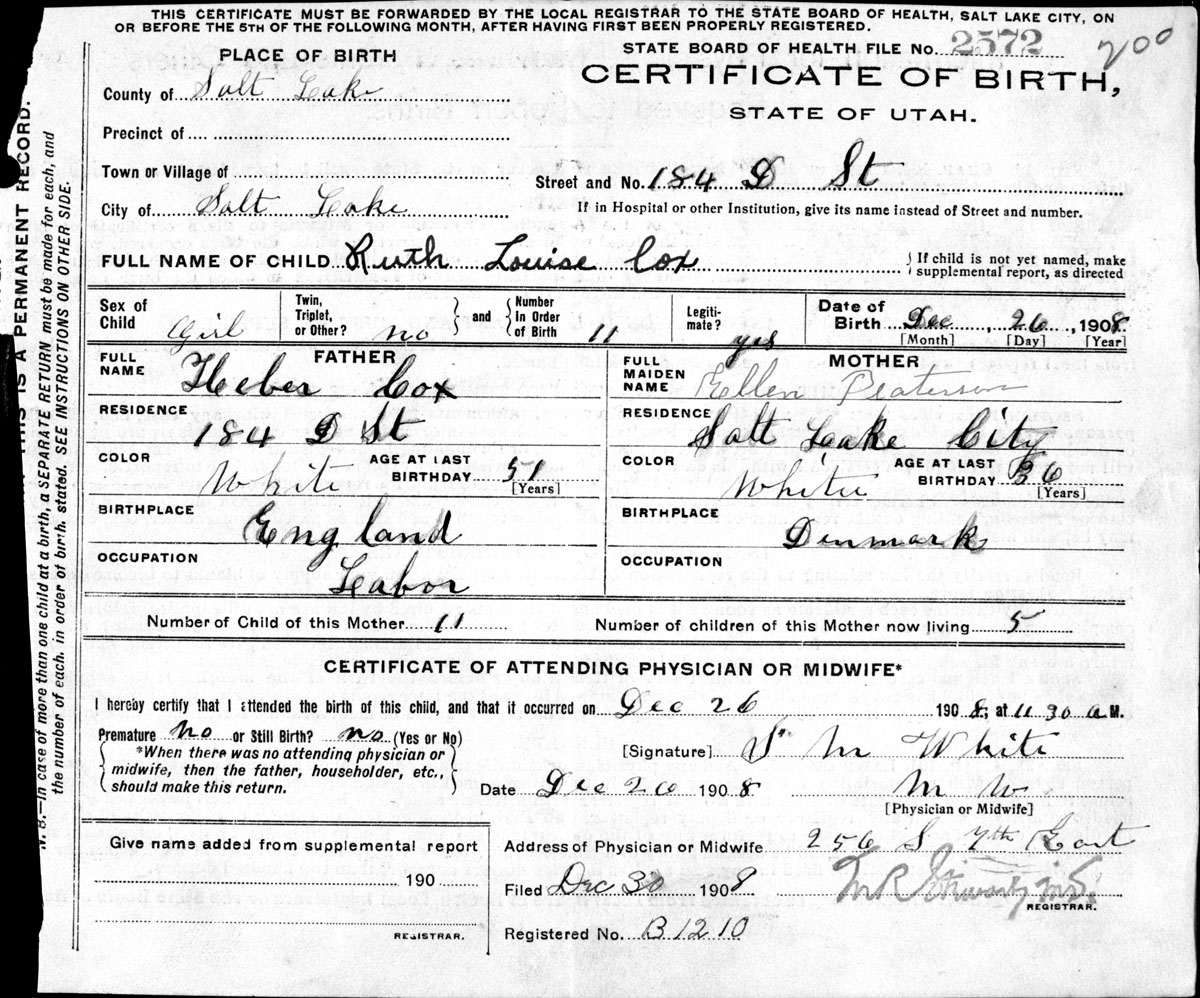 THIS CERTIFICATE MUST BE FORWARDED BY THE LOCAL REGISTRAR TO THE STATE BOARD OF HEALTH, SALT LAKE CITY, ON
OR BEFORE THE 5TH OF THE FOLLOWING MONTH, AFTER HAVING FIRST BEEN PROPERLY REGISTERED.
PLACE OF BIRTH
STATE BOARD OF HEALTH FILE No. 2572
200
CERTIFICATE OF BIRTH,
STATE OF UTAH.
County of Salt Lake
Precinct of
Town or Village of
Street and No. 184 D St
City of Salt Lake
If in Hospital or other Institution, give its name instead of Street and number.
FULL NAME OF CHILD Ruth Louise Cox
If child is not yet named, make
supplemental report, as directed
Sex of Child Girl
Twin, Triplet, or Other? no
and
Number In Order of Birth 11
Legitimate? yes
Date of Birth Dec, 26, 1908
[Month] [Day] [Year]
FATHER
FULL NAME Heber Cox
RESIDENCE 184 D St
COLOR White
AGE AT LAST BIRTHDAY 51
[Years]
BIRTHPLACE England
OCCUPATION Labor
MOTHER
FULL MAIDEN NAME Ellen Peaterson
RESIDENCE Salt Lake City
COLOR White
AGE AT LAST BIRTHDAY 36
[Years]
BIRTHPLACE Denmark
OCCUPATION
Number of Child of this Mother 11
Number of children of this Mother now living 5
CERTIFICATE OF ATTENDING PHYSICIAN OR MIDWIFE*
I hereby certify that I attended the birth of this child, and that it occurred on Dec 26 1908, at 11 30 a M.
Premature No or Still Birth? no (Yes or No)
*When there was no attending physician or
midwife, then the father, householder, etc.,
should make this return.
[Signature] S M White
Date Dec 26 1908
M W.
[Physician or Midwife]
Give name added from supplemental report
190
REGISTRAR.
Address of Physician or Midwife 256 S 7th East
Filed Dec 30 1908
REGISTRAR.
Registered No. B1210
THIS IS A PERMANENT RECORD.
N. B.—In case of more than one child at a birth, a SEPARATE RETURN must be made for each, and
the number of each, in order of birth, stated. SEE INSTRUCTIONS ON OTHER SIDE.